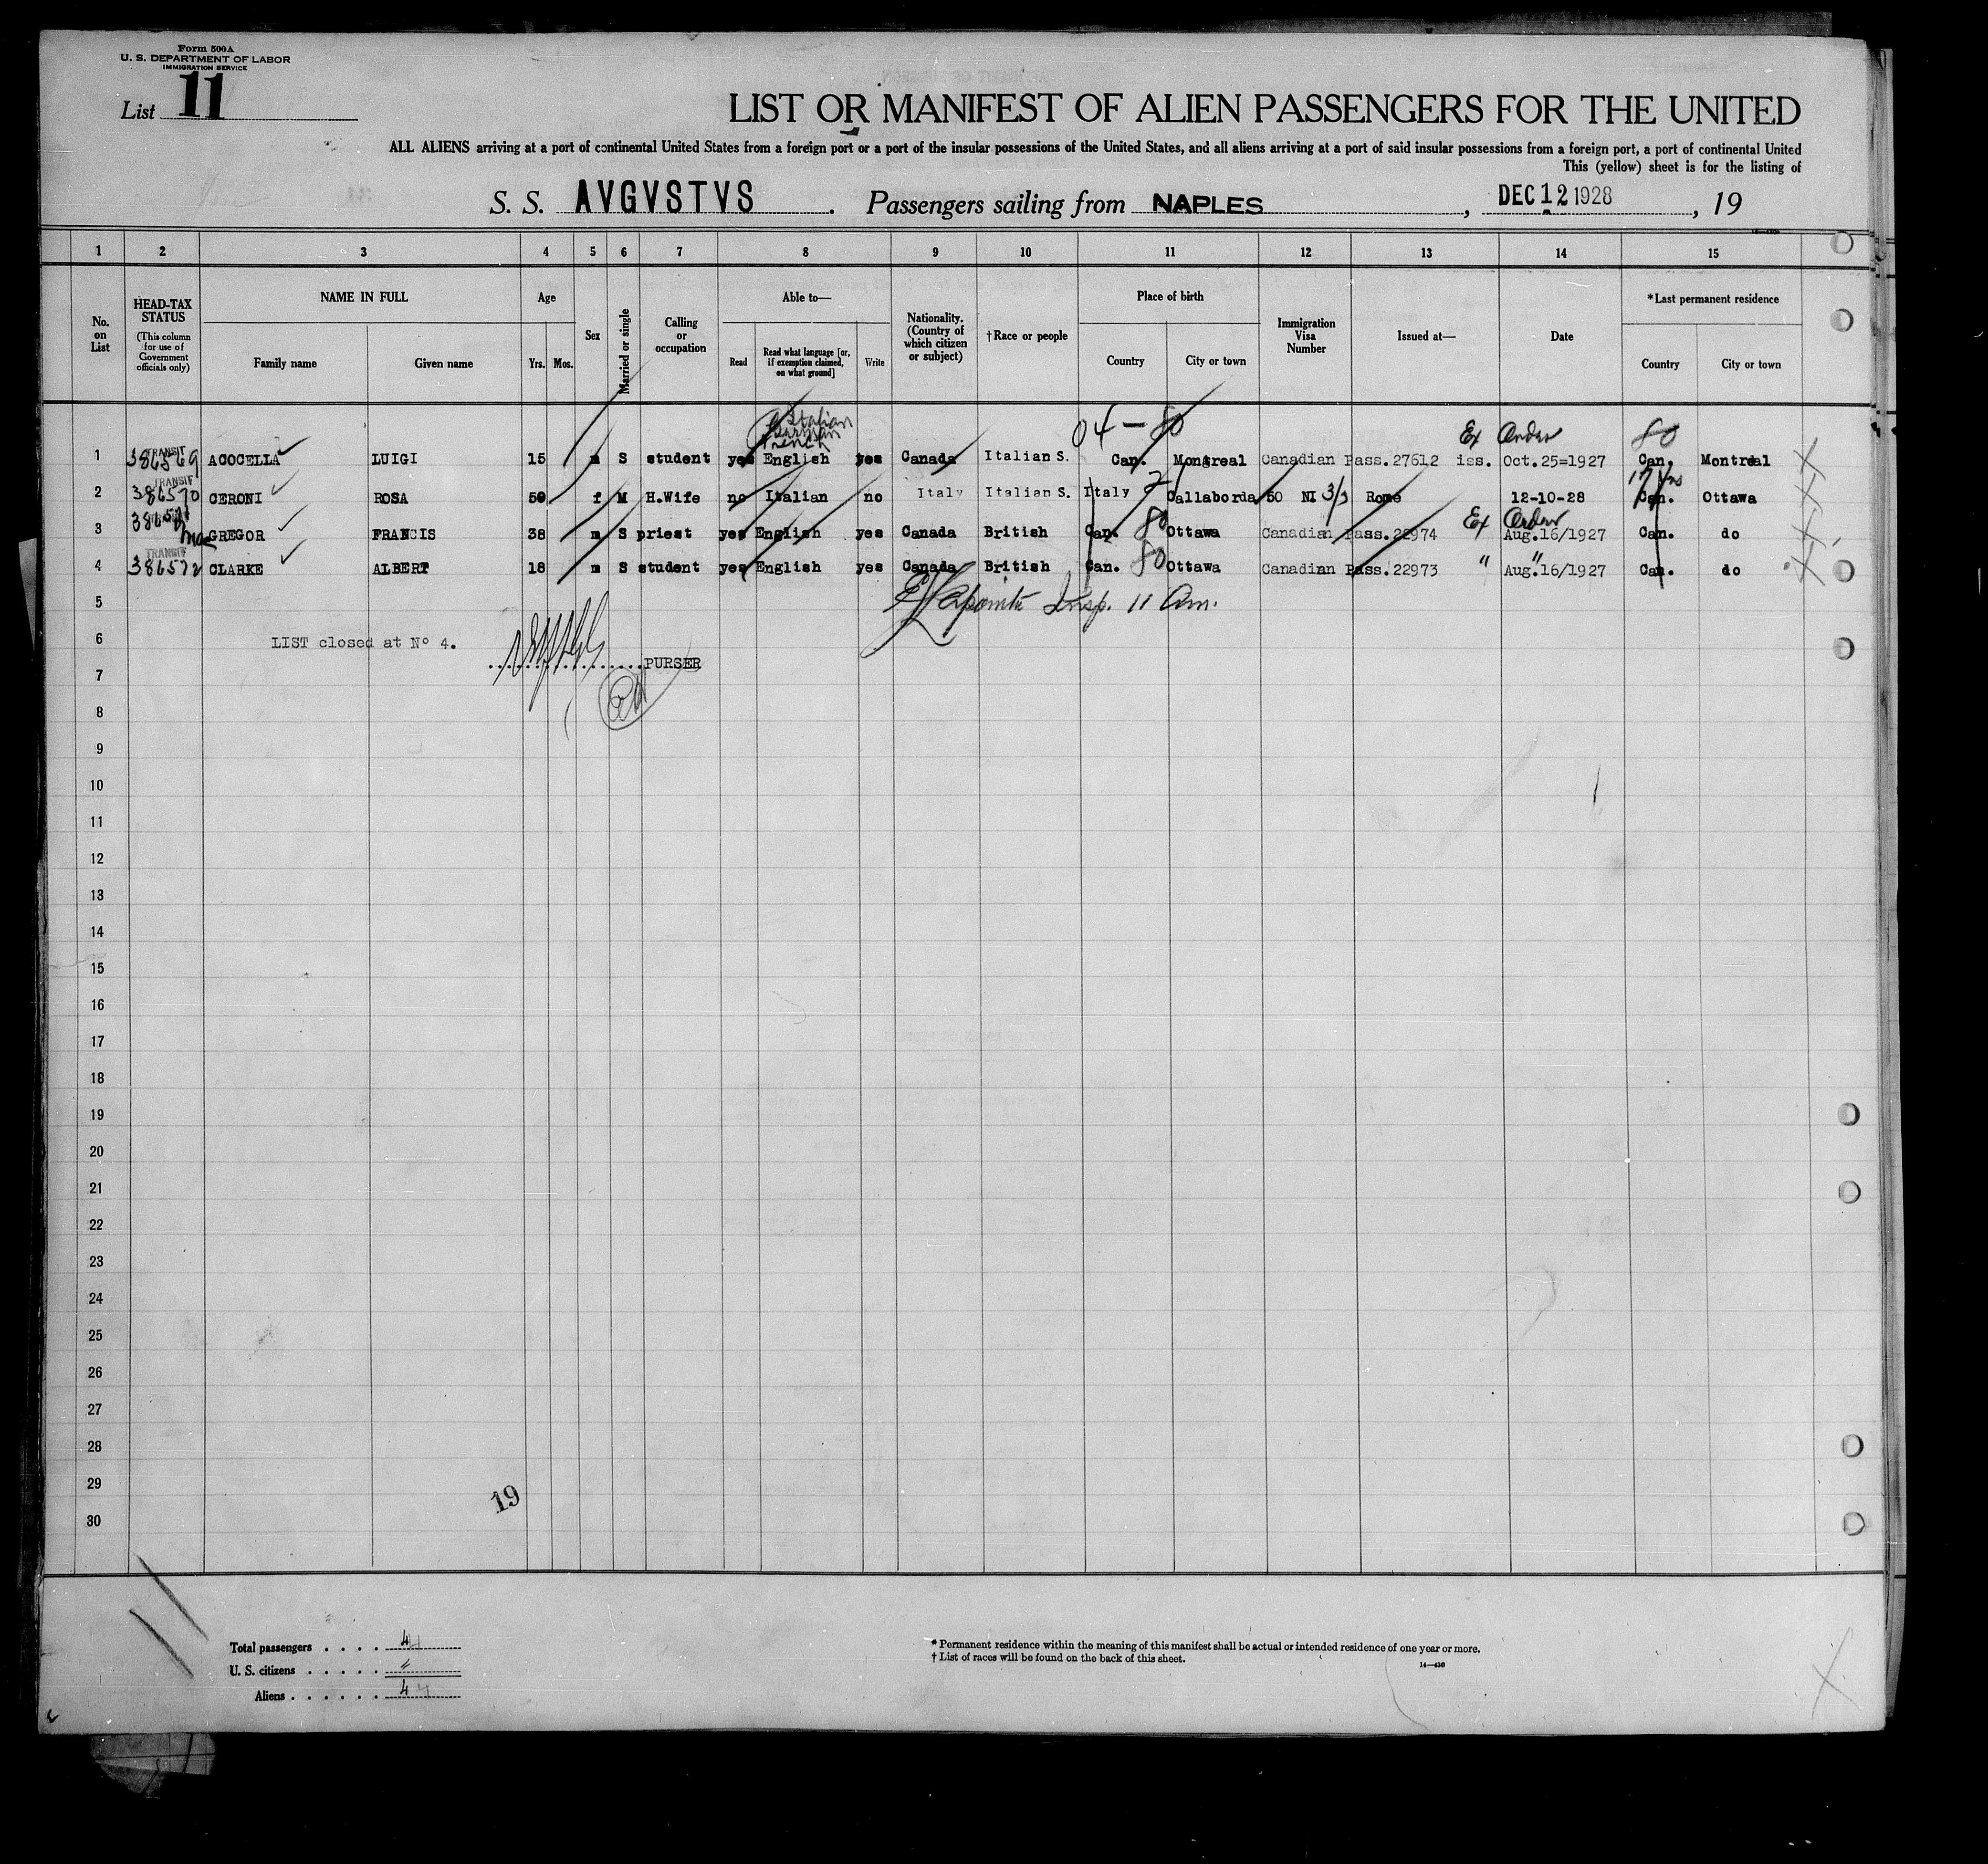 Form 500A
U. S. DEPARTMENT OF LABOR
IMMIGRATION SERVICE
List 11
LIST OR MANIFEST OF ALIEN PASSENGERS FOR THE UNITED
ALL ALIENS arriving at a port of continental United States from a foreign port or a port of the insular possessions of the United States, and all aliens arriving at a port of said insular possessions from a foreign port, a port of continental United
This (yellow) sheet is for the listing of
S. S. AVGVSTVS. Passengers sailing from NAPLES, DEC 12 1928, 19
1 2 3 4 5 6 7 8 9 10 11 12 13 14 15
No. on List
HEAD-TAX STATUS (This column for use of Government officials only)
NAME IN FULL Family name Given name
Age Yrs. Mos.
Sex
Married or single
Calling or occupation
Able to— Read Read what language [or, if exemption claimed, on what ground] Write
Nationality. (Country of which citizen or subject)
†Race or people
Place of birth Country City or town
Immigration Visa Number
Issued at—
Date
*Last permanent residence Country City or town
Italian German French 04-80 Ex Order 80
1 TRANSIT 386569 ACOCELLA LUIGI 15 m S student yes English yes Canada Italian S. Can. Montreal Canadian Pass.27612 iss. Oct.25=1927 Can. Montreal
2 TRANSIT 386570 CERONI ROSA 50 f M H.Wife no Italian no Italy Italian S. Italy Callaborda 50 NI 3/3 Rome 12-10-28 17 yrs Can. Ottawa
3 386571 Mac GREGOR FRANCIS 38 m S priest yes English yes Canada British Can. 80 Ottawa Canadian Pass.22974 Ex Order Aug.16/1927 Can. do
4 TRANSIT 386572 CLARKE ALBERT 18 m S student yes English yes Canada British Can. 80 Ottawa Canadian Pass.22973 " " Aug.16/1927 Can. do
5 Lapointe Insp. 11 Am.
6 LIST closed at Nº 4.
PURSER
7
8
9
10
11
12
13
14
15
16
17
18
19
20
21
22
23
24
25
26
27
28
29
19
30
Total passengers .... 4
U. S. citizens ..... "
Aliens ...... 4
* Permanent residence within the meaning of this manifest shall be actual or intended residence of one year or more.
† List of races will be found on the back of this sheet.
14—430